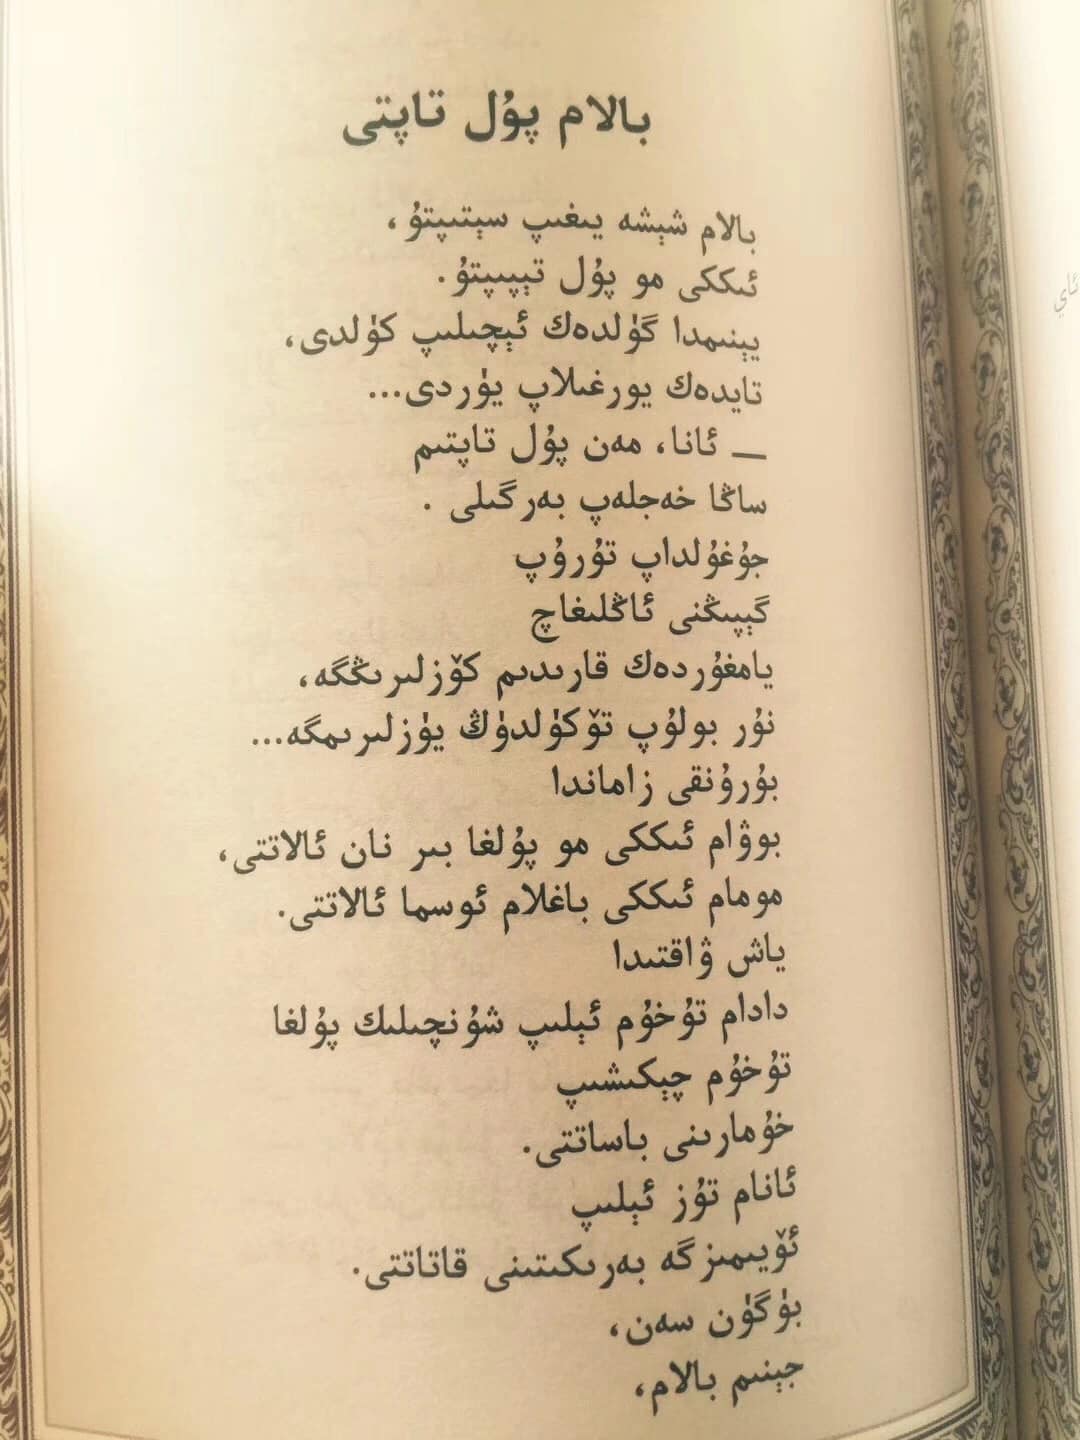 بالام پۇل تاپتى
بالام شېشە يىغىپ سېتىپتۇ،
ئىككى مو پۇل تېپىپتۇ.
يېنىمدا گۈلدەك ئېچىلىپ كۈلدى،
تايدەك يورغىلاپ يۈردى...
— ئانا، مەن پۇل تاپتىم
ساڭا خەجلەپ بەرگىلى .
جۇغۇلداپ تۇرۇپ
گېپىڭنى ئاڭلىغاچ
يامغۇردەك قارىدىم كۆزلىرىڭگە،
نۇر بولۇپ تۆكۈلدۈڭ يۈزلىرىمگە...
بۇرۇنقى زاماندا
بوۋام ئىككى مو پۇلغا بىر نان ئالاتتى،
مومام ئىككى باغلام ئوسما ئالاتتى.
ياش ۋاقتىدا
دادام تۇخۇم ئېلىپ شۇنچىلىك پۇلغا
تۇخۇم چېكىشىپ
خۇمارىنى باساتتى.
ئانام تۇز ئېلىپ
ئۆيىمىزگە بەرىكىتىنى قاتاتتى.
بۈگۈن سەن،
جېنىم بالام،
ئاي